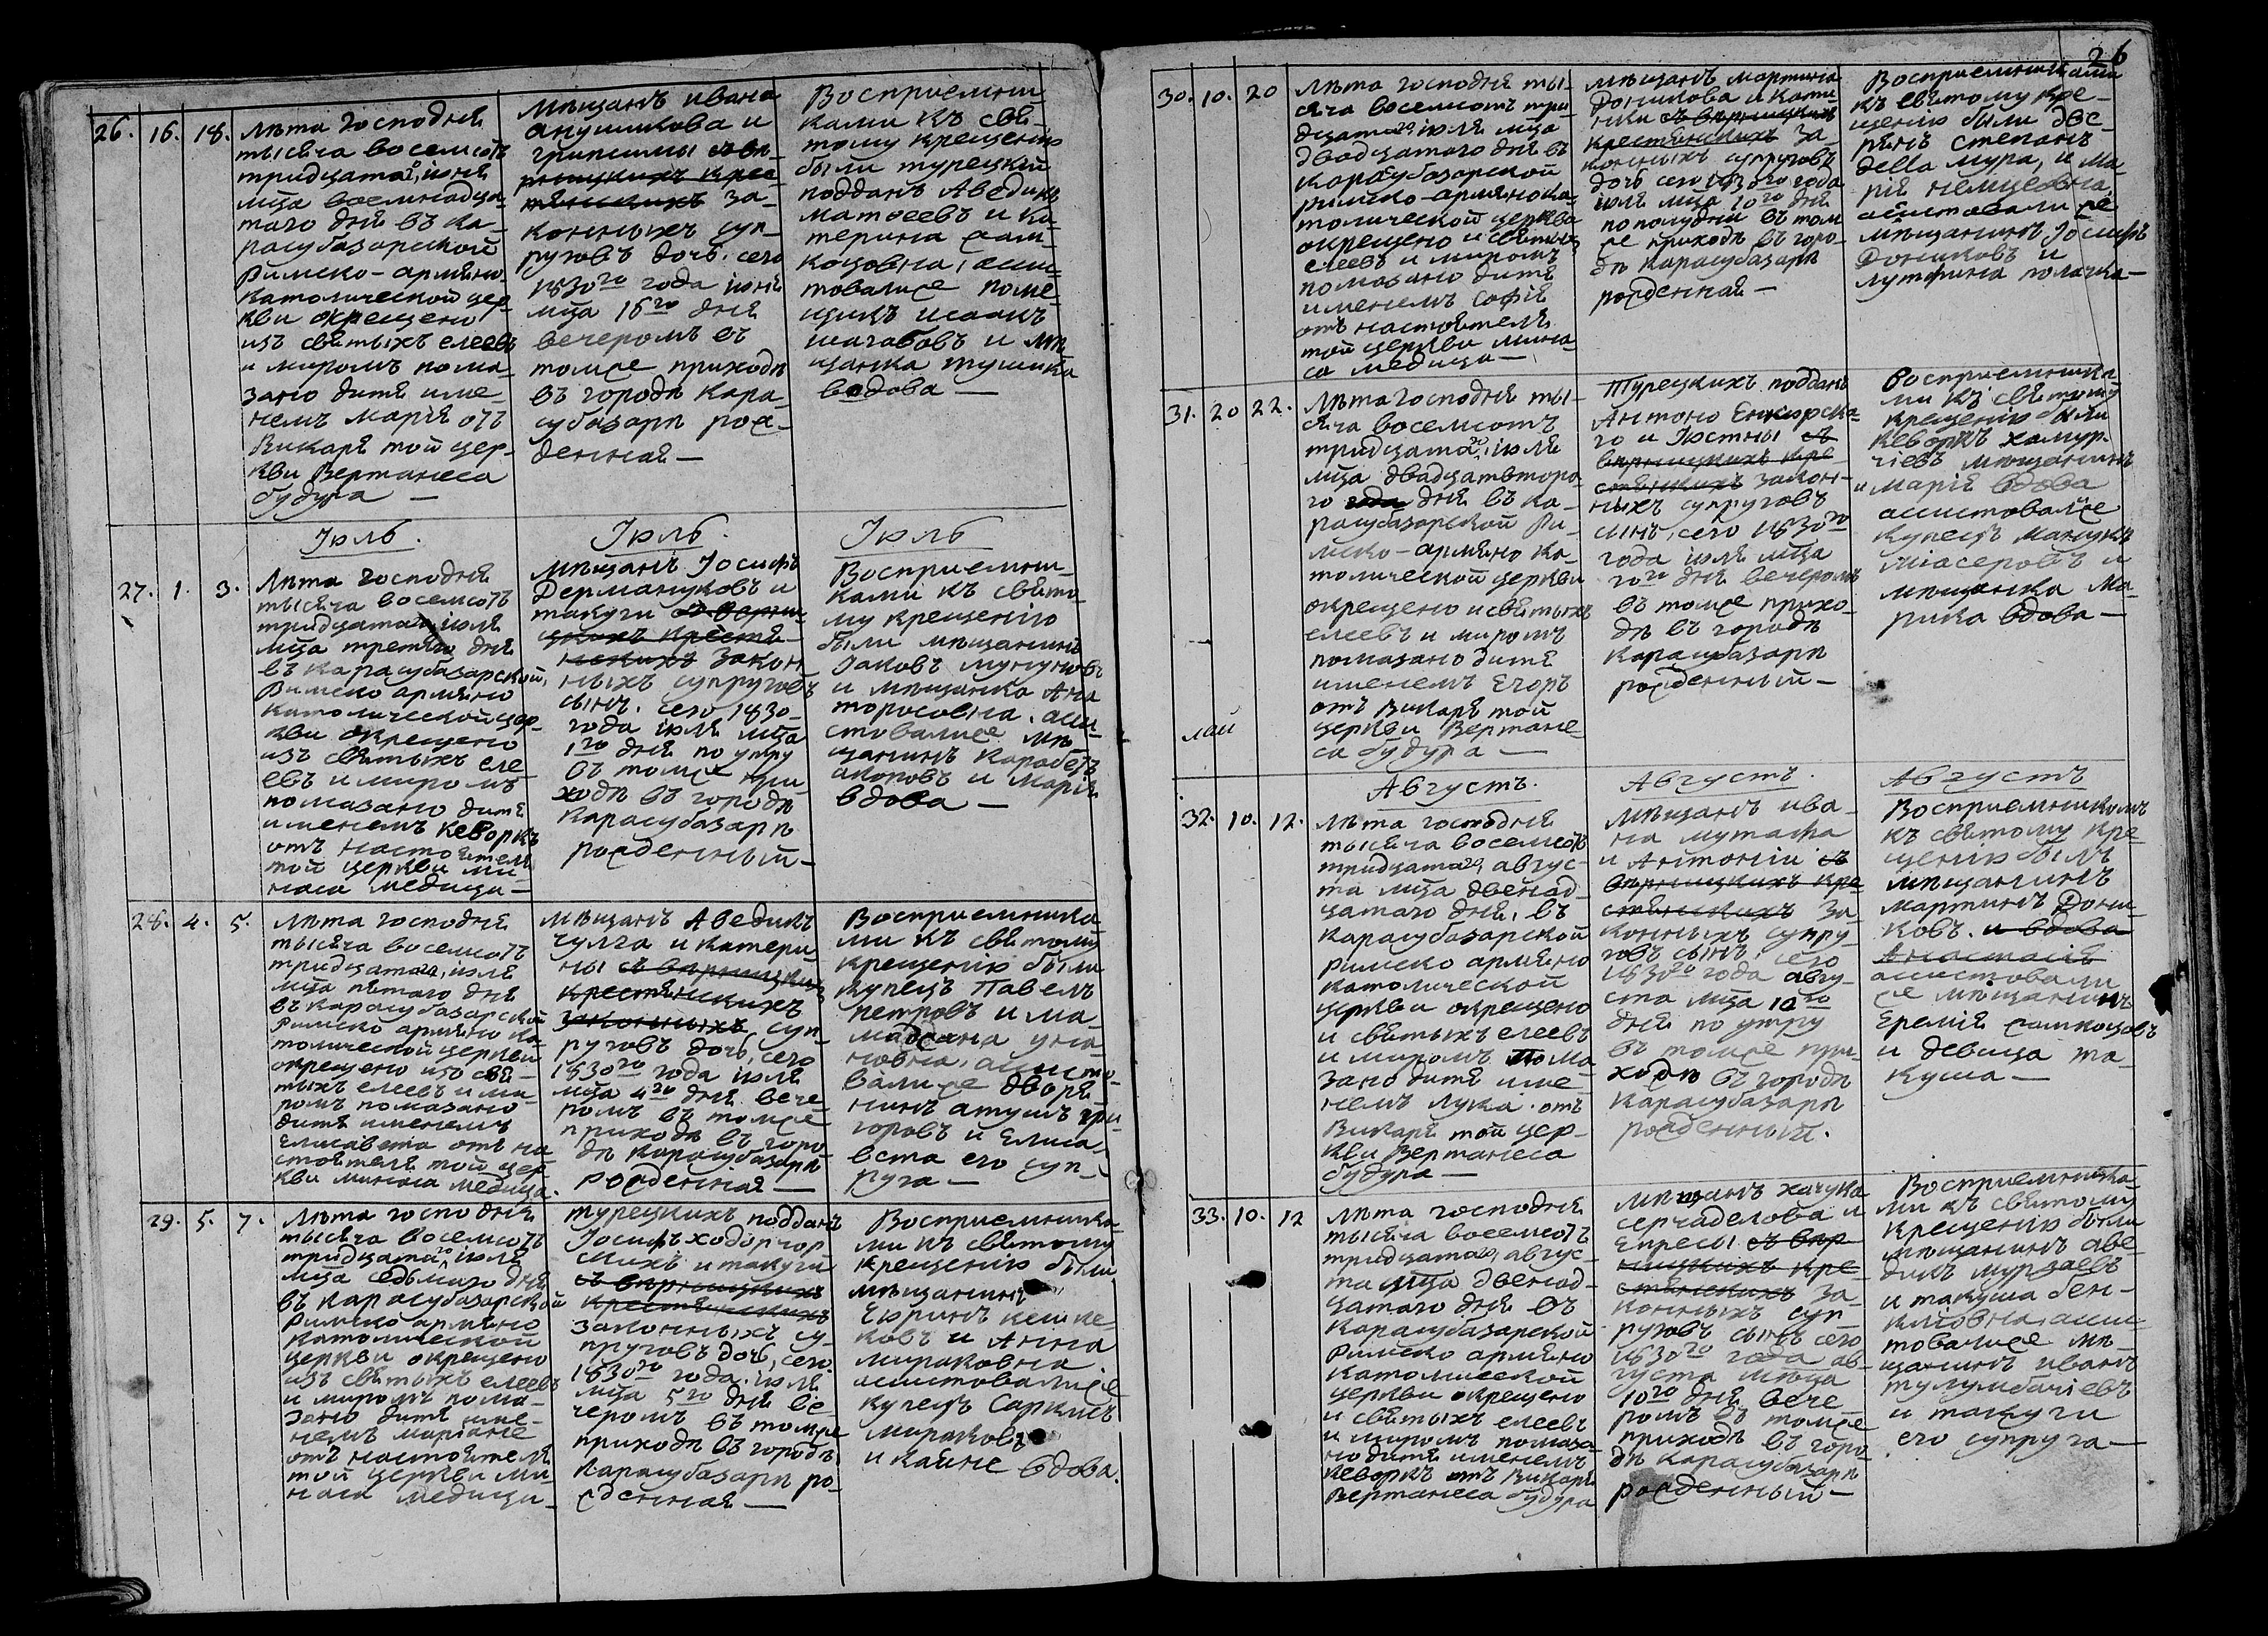 26
26. 16. 18.
Лѣта Господня
тысяча восемсотъ
тридцатаго, іюня
мца восемнадца-
таго дня въ Ка-
расубазарской
Римско-армяно
католической цер-
кви окрещено
изъ святыхъ елеевъ
и миромъ пома-
зано дитя име-
немъ Марія отъ
Викаря той цер-
кви Вертанеса
будура —
мѣщанъ ивана
анушикова и
грипсимы съ вѣ-
рницкихъ крес-
тянскихъ за-
конныхъ суп-
руговъ дочь, сего
1830го года іюня
мца 16го дня
вечеромъ въ
томже приходѣ
въ городѣ Кара-
субазарѣ рож-
денная —
Восприемни-
ками къ свя-
тому крещенію
были турецкій
подданъ Аведикъ
матѳеевъ и Ка-
терина
асис-
товалисе поме-
щикъ исаакъ
шагабовъ и мѣ-
щанка тушика
вдова —
Іюль.
Іюль.
Іюль
27. 1. 3.
Лѣта господня
тысяча восемсотъ
тридцатаго іюля
мца третяго дня
въ карасубазарской
Римско армяно
католической цер-
кви окрещено
изъ святыхъ еле-
евъ и миромъ
помазано дитя
именемъ Кеворкъ
отъ настоятеля
той церкви ми-
наса медици —
мѣщанъ Іосифъ
Дермануковъ и
такуги съ верни-
цкихъ крестя-
нскихъ закон
ныхъ супруговъ
сынъ. сего 1830-
года іюля мца
1го дня по утру
въ томже при-
ходѣ въ городѣ
Карасубазарѣ
рожденный —
Восприемни-
ками къ свято
му крещенію
были мѣщанинъ
Іаковъ мунуновъ
и мѣщанка Ана
торосовна. аси-
стовалисе мѣ
щанинъ Карабетъ
акоповъ и Марія
вдова —
28. 4. 5.
Лѣта господня
тысяча восемсотъ
тридцатаго, іюля
мца пятаго дня
въ карасубазарской
Римско армяно ка-
толической церкви
окрещено изъ свя-
тыхъ елеевъ и ми-
ромъ помазано
дитя именемъ
Елисавета отъ на
стоятеля той цер-
кви минаса медица.
мѣщанъ Аведикъ
чулга и катери
ны съ вѣрницких
крестянскихъ
законныхъ суп-
руговъ дочь, сего
1830го года іюля
мца 4го дня вече
ромъ въ томже
приходѣ въ горо-
дѣ карасубазарѣ
рожденная —
Восприемника
ми къ святому
крещенію были
купецъ Павелъ
петровъ и ма-
уна-
новна, асисто
валисе дворя-
нинъ атумъ гри-
горовъ и Елиса-
вета его суп-
руга —
29. 5. 7.
Лѣта господня
тысяча восемсотъ
тридцатаго іюля
мца седьмаго дня
въ карасубазарской
Римско армяно
католической
церкви окрещено
изъ святыхъ елеевъ
и миромъ пома-
зано дитя име-
немъ маріане
отъ настоятеля
той церкви ми-
наса медици —
турецкихъ подданъ
Іосифъ
и такуги
съ вѣрницкихъ
крестянскихъ
законныхъ су-
пруговъ дочь, сего
1830го года іюля
мца 5го дня ве
черомъ въ томже
приходѣ въ городѣ
Карасубазарѣ ро-
жденная —
Восприемника
ми къ святому
крещенію были
мѣщанинъ
и Анна
мираковна.
асистовалисе
купецъ Саркисъ
мираковъ
и каине вдова.
30. 10. 20
Лѣта господня ты-
сяча восемсотъ три-
дцатаго іюля мца
двадцатаго дня въ
карасубазарской
римско-армяно ка-
толической церкви
окрещено и святыхъ
елеевъ и миромъ
помазано дитя
именемъ Софія
отъ настоятеля
той церкви мина-
са медица —
мѣщанъ мартина
Доникова и Кати-
нки съ вѣрницкихъ
крестянскихъ за-
конныхъ супруговъ
дочь сего 1830го года
іюля мца 20го дня
пополудни въ том
же приходѣ въ горо-
дѣ Карасубазарѣ
рожденная —
Восприемниками
къ святому кре-
щенію были дво-
рянъ степанъ
деlla мура, и Ма-
рія немцевна,
асистовали се
мѣщанинъ Іосифъ
Дониковъ и
лутфина полачка —
31. 20 22.
Лѣта господня ты-
сяча восемсотъ
тридцатаго, іюля
мца двадцатвтора-
го года дня въ ка-
расубазарской Ри-
мско-армяно ка-
толической церкви
окрещено и святыхъ
елеевъ и миромъ
помазано дитя
именемъ Егоръ
отъ Викаря той
церкви Вертане-
са будура —
Турецкихъ подданъ
Антоно
го и Юстины съ
вѣрницкихъ кре-
стянскихъ закон-
ныхъ супруговъ
сынъ, сего 1830го
года іюля мца
20го дня вечеромъ
въ томже прихо-
дѣ въ городѣ
Карасубазарѣ
рожденный —
Восприемника-
ми къ святому
крещенію были
Кеворкъ хамур-
чіевъ мѣщанинъ
и марія вдова
асистовалисе
купецъ манукъ
міасеровъ и
мѣщанка Ма-
рика вдова —
Августъ.
Августъ.
Августъ
32. 10. 12.
Лѣта господня
тысяча восемсотъ
тридцатаго, авгус-
та мца двенад-
цатаго дня, въ
Карасубазарской
Римско армяно
католической
церкви окрещено
и святыхъ елеевъ
и миромъ пома
зано дитя име
немъ лука. отъ
Викаря той цер-
кви Вертанеса
будура —
мѣщанъ ива-
на мутафа
и Антоніи съ
вѣрницкихъ кре
стянскихъ за-
конныхъ супру-
говъ сынъ, сего
1830го года авгу-
ста мца 10го
дня по утру
въ томже при-
ходѣ въ городѣ
Карасубазарѣ
рожденный.
Восприемникомъ
къ святому кре
щенію былъ
мѣщанинъ
мартинъ Дони-
ковъ. и вдова
Анастасія
асистовали
се мѣщанинъ
Еремія
и девица та
куша —
33. 10. 12
Лѣта господня
тысяча восемсотъ
тридцатаго, авгус-
та мца двенад-
цатаго дня въ
Карасубазарской
Римско армяно
католической
церкви окрещено
и святыхъ елеевъ
и миромъ помаза-
но дитя именемъ
Кеворкъ отъ Викаря
Вертанеса будура
мѣщанъ хачука
серчаделова и
Епресы съ вѣр
ницкихъ кре-
стянскихъ за-
конныхъ суп-
руговъ сынъ сего
1830го года ав-
густа мѣца
10го дня вече
ромъ въ томже
приходѣ въ горо-
дѣ Карасубазарѣ
рожденный —
Восприемника
ми къ святому
крещенію были
мѣщанинъ аве
дикъ мурзаевъ
и такуша бен-
кліовна, асис-
товалисе мѣ-
щанинъ иванъ
тулумбачіевъ
и такуги
его супруга —